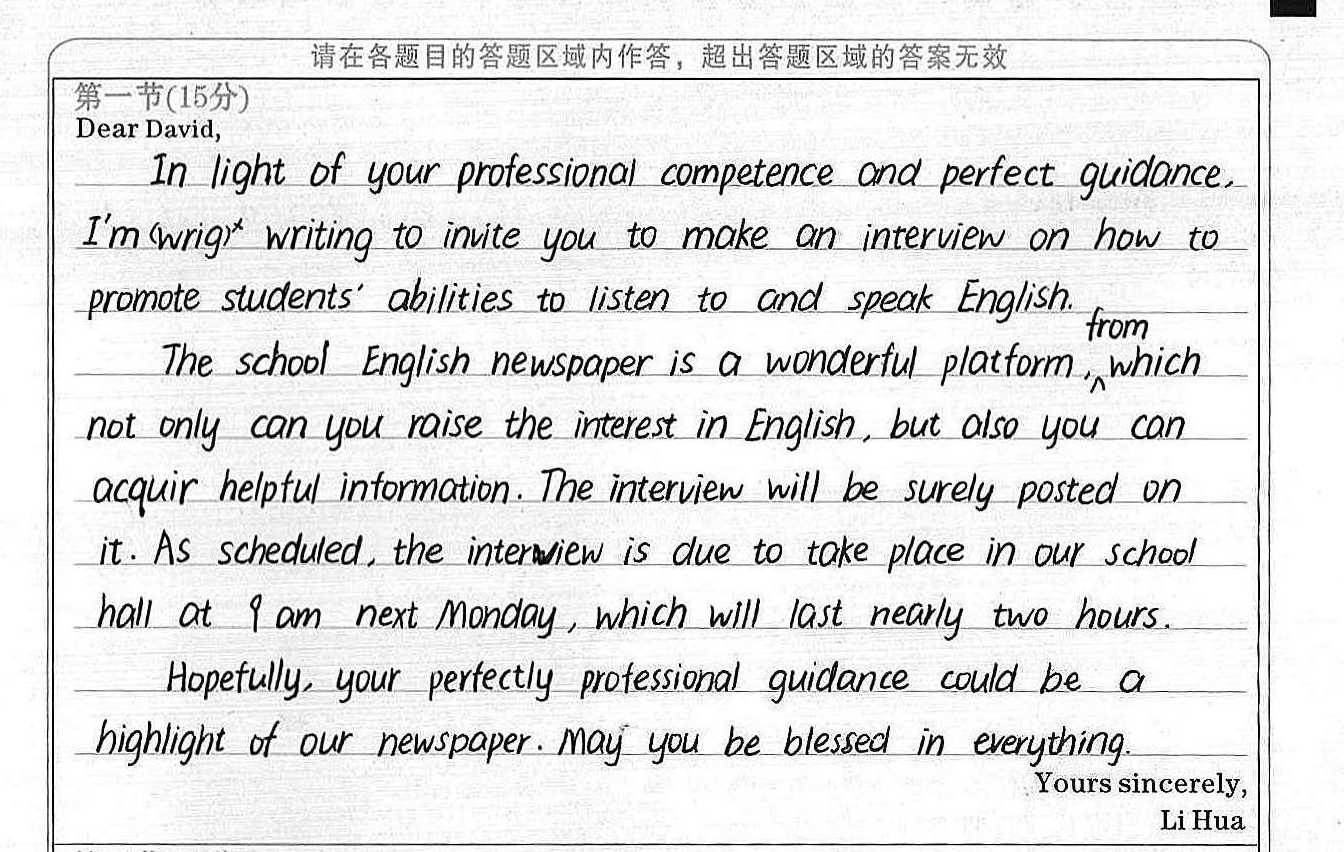 请在各题目的答题区域内作答，超出答题区域的答案无效
第一节(15分)
Dear David,
In light of your professional competence and perfect guidance,
I'm (wrig)* writing to invite you to make an interview on how to
promote students' abilities to listen to and speak English.
from
The school English newspaper is a wonderful platform, ^ which
not only can you raise the interest in English, but also you can
acquir helpful information. The interview will be surely posted on
it. As scheduled, the interview is due to take place in our school
hall at 9 am next Monday, which will last nearly two hours.
Hopefully, your perfectly professional guidance could be a
highlight of our newspaper. May you be blessed in everything.
Yours sincerely,
Li Hua